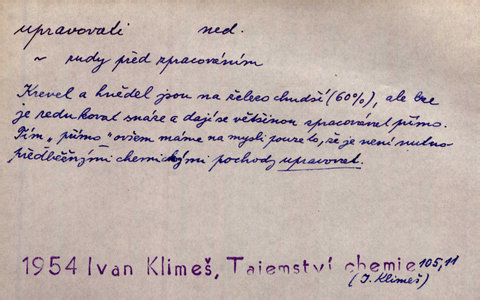 upravovati ned.
~ rudy před zpracováním
Krevel a hnědel jsou na železo chudší (60%), ale lze
je redukovat snáze a dají se většinou zpracovávat přímo.
Tím „přímo" ovšem máme na mysli pouze to, že je není nutno
předběžnými chemickými pochody upravovat.
1954 Ivan Klimeš, Tajemství chemie 105,11
(I. Klimeš)